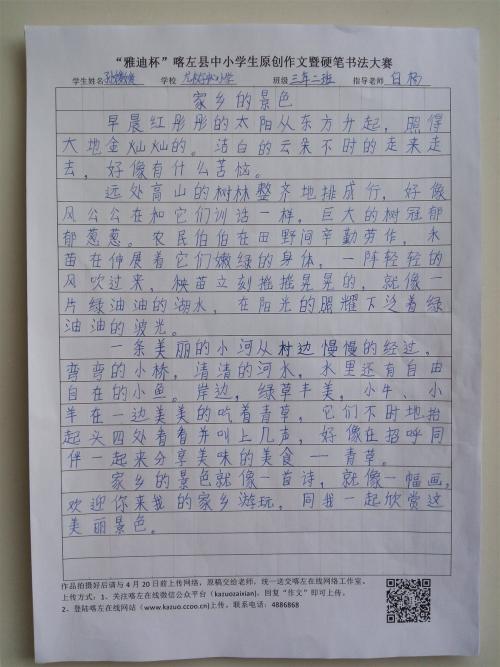 “雅迪杯”喀左县中小学生原创作文暨硬笔书法大赛
学生姓名 学校 小学 班级 三年二班 指导老师 白杨
家乡的景色
早晨红彤彤的太阳从东方升起，照得
大地金灿灿的。洁白的云朵不时的走来走
去，好像有什么苦恼。
远处高山的树林整齐地排成行，好像
风公公在和它们训话一样，巨大的树冠郁
郁葱葱。农民伯伯在田野间辛勤劳作，禾
苗在伸展着它们嫩绿的身体，一阵轻轻的
风吹过来，秧苗立刻摇摇晃晃的，就像一
片绿油油的湖水，在阳光的照耀下泛着绿
油油的波光。
一条美丽的小河从村边慢慢的经过，
弯弯的小桥，清清的河水，水里还有自由
自在的小鱼。岸边，绿草丰美，小牛、小
羊在一边美美的吃着青草，它们不时地抬
起头四处看看并叫上几声，好像在招呼同
伴一起来分享美味的美食——青草。
家乡的景色就像一首诗，就像一幅画，
欢迎你来我的家乡游玩，同我一起欣赏这
美丽景色。
作品拍摄好后请与 4 月 20 日前上传网络，原稿交给老师，统一送交喀左在线网络工作室。
上传方式：1、关注喀左在线微信公众平台（kazuozaixian）。回复“作文”即可上传。
2、登陆喀左在线网站（www.kazuo.ccoo.cn)上传。联系电话：4886868